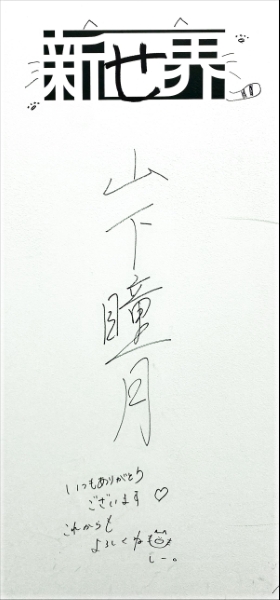 新世界
山下瞳月
いつもありがとう
ございます♡
これからも
よろしくねも
しー。